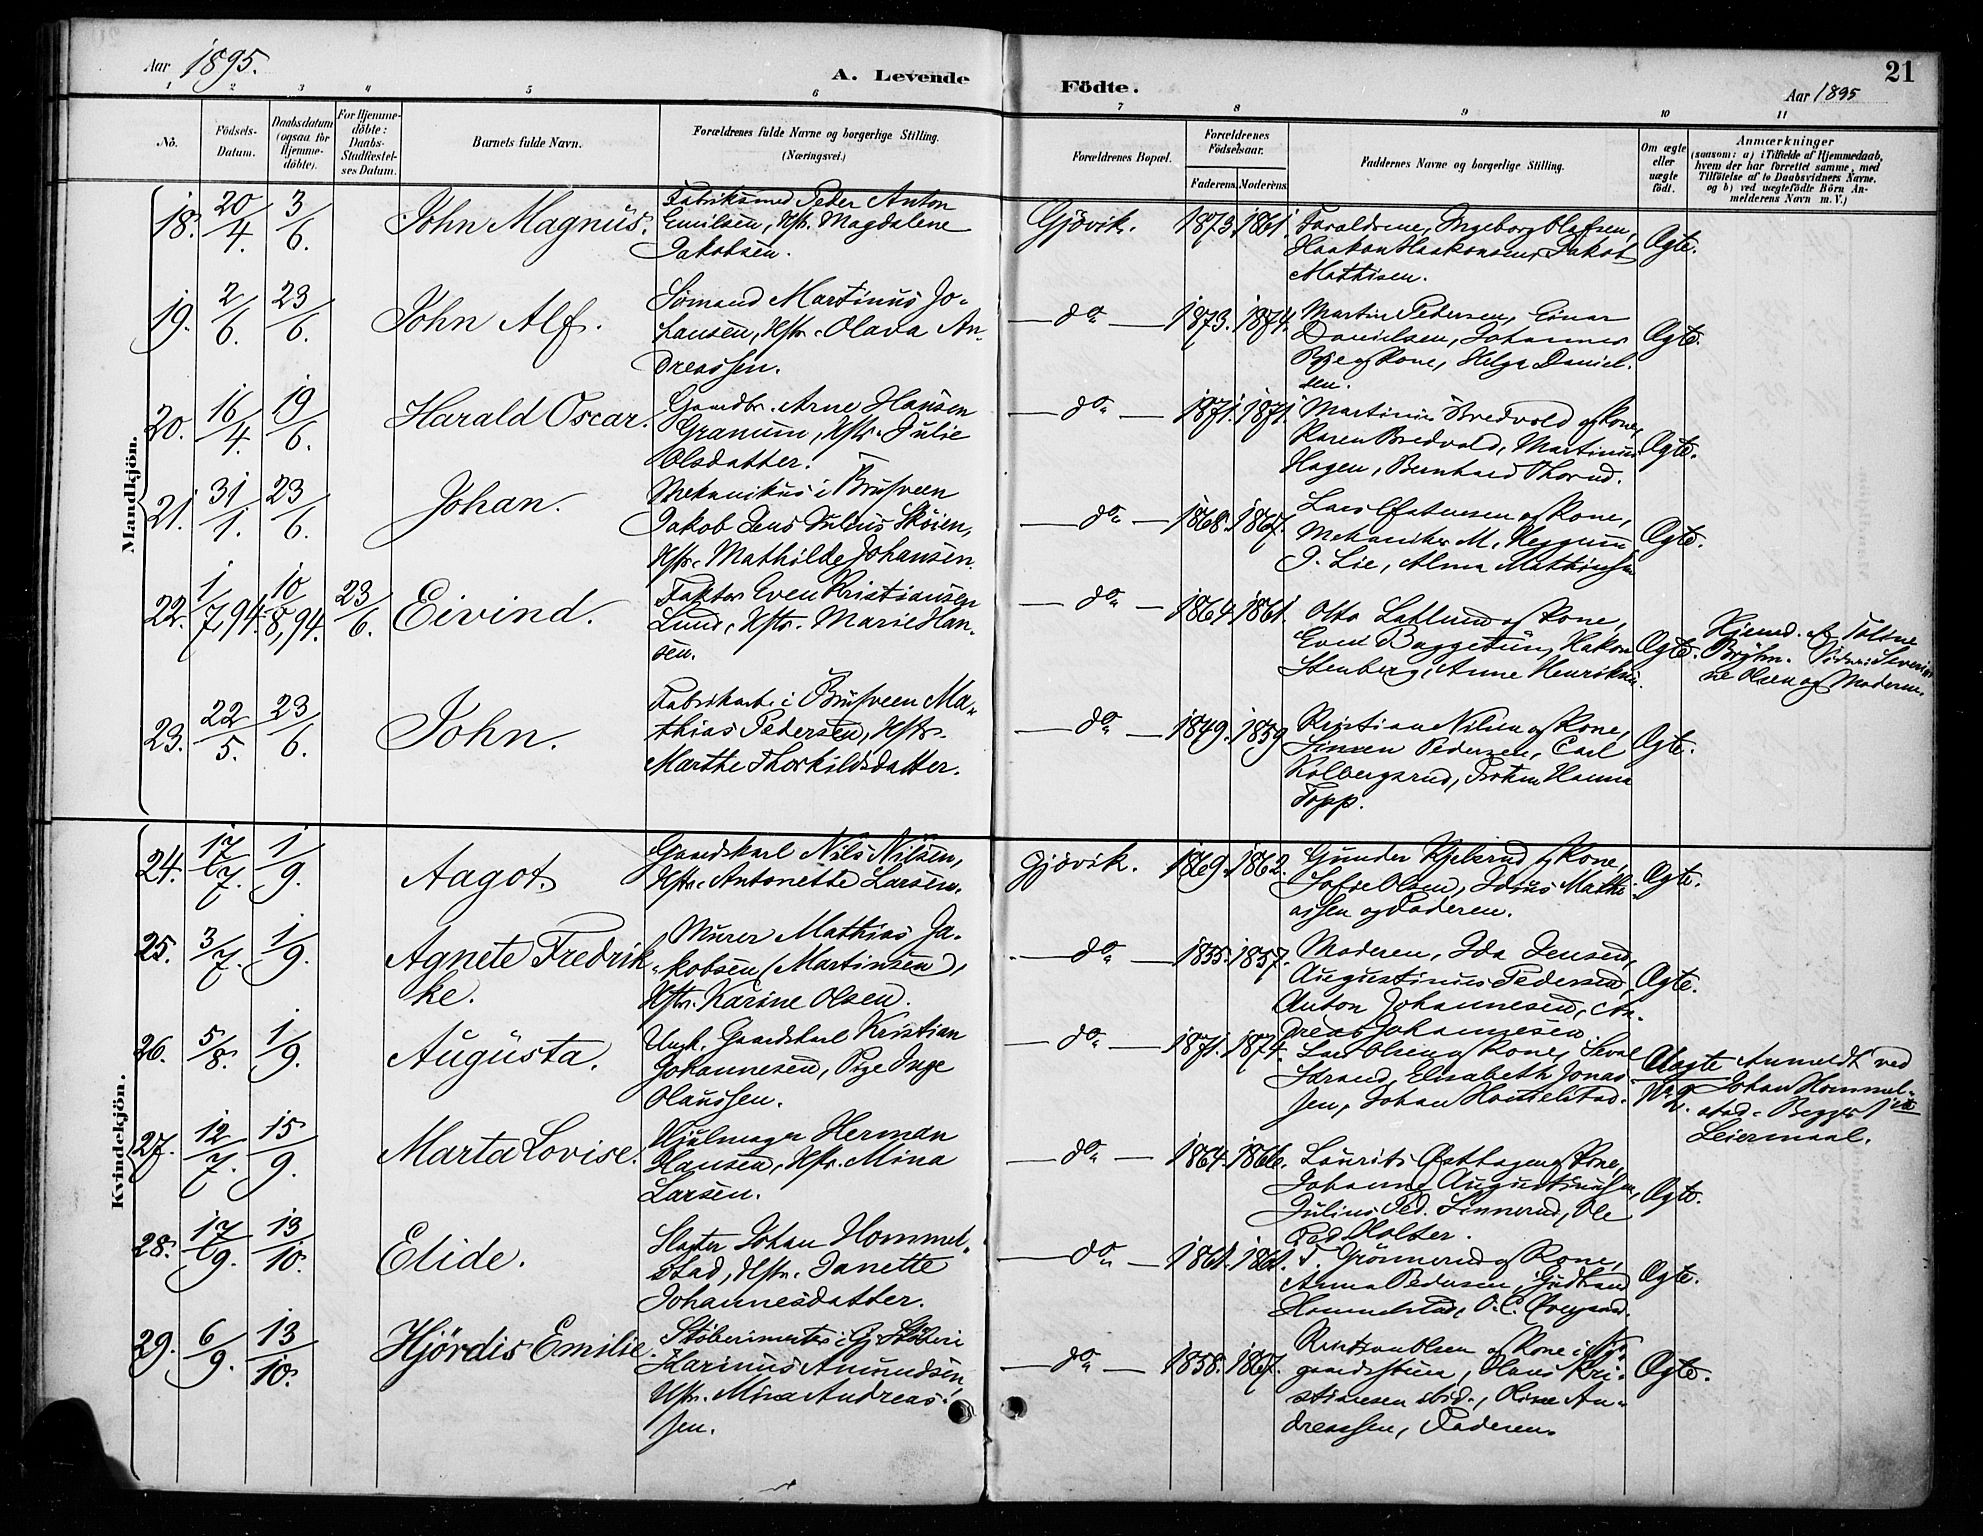 Aar 1895.
A. Levende Födte.
Aar 1895
21
1 2 3 4 5 6 7 8 9 10 11
No.
Födsels-Datum.
Daabsdatum (ogsaa for Hjemme-döbte).
For Hjemme-döbte: Daabs-Stadfæstel-ses Datum.
Barnets fulde Navn.
Forældrenes fulde Navne og borgerlige Stilling. (Næringsvei.)
Forældrenes Bopæl.
Forældrenes Födselsaar.
Faderens. Moderens.
Faddernes Navne og borgerlige Stilling.
Om ægte eller uægte födt.
Anmærkninger
(saasom: a) i Tilfælde af Hjemmedaab, hvem der har forrettet samme, med Tilföielse af to Daabsvidners Navne, og b) ved uægtefödte Börn Anmelderens Navn m. V.)
Mandkjön.
18. 20/4. 3/6. John Magnus.
Fabriksmed Peder Anton
Emilsen, Hstr. Magdalene
Jakobsen.
Gjövik. 1873. 1861.
Forældrene, Ingeborg Olafsen,
Haakon Haakonsen, Jakob
Mathisen.
Ægte.
19. 2/6. 23/6. John Alf.
Sömand Martinus Jo-
hansen, Hstr. Olava An-
dreassen.
do 1873. 1874.
Martin Pedersen, Einar
Danielsen, Johannes
Bye og Kone, Helga Daniel-
sen.
Ægte.
20. 16/4. 19/6. Harald Oscar.
Gaardbr. Arne Hansen
Granum, Hstr. Julie
Olsdatter.
do 1871. 1871.
Martinus Bredvold og Kone,
Karen Bredvold, Martinus
Hagen, Bernhard Thorud.
Ægte.
21. 31/1. 23/6. Johan.
Mekanikus i Brusveen
Jakob Jens Julius Sköien,
Hstr. Mathilde Johansen.
do 1868. 1867.
Lars og Kone,
Mekaniker M. Heggum
J. Lie, Alma Mathisen
Ægte.
22. 1/7, 94. 10/8, 94. 23/6. Eivind.
Faktor Even Kristiansen
Lund, Hstr. Marie Han-
sen.
do 1864. 1861.
Otto og Kone,
Even Baggetun, Hakon
Stenberg, Anne Henriksen.
Ægte.
Hjemd. af
Olsen og Moderen.
23. 22/5. 23/6. John.
Fabrikarb. i Brusveen Ma-
thias Pedersen, Hstr.
Marthe Thorkildsdatter.
do 1849. 1859
Kristian Nilsen og Kone,
Simen Pedersen, Carl
Kolbergsrud, Hanna
Topp.
Ægte.
Kvindekjön.
24. 17/7. 1/9. Aagot.
Gaardskarl Nils Nilsen,
Hstr. Antonette Larsen.
Gjövik. 1869. 1862.
Gunder Kjelsrud og Kone,
Sofie Olsen, Idius Mathi-
assen og Faderen.
Ægte.
25. 3/7. 1/9. Agnete Fredrik-
ke.
Murer Mathias Ja-
kobsen (Martinsen),
Hstr. Karine Olsen.
do 1855. 1857.
Moderen, Ida Jensen,
Augustinus Pedersen,
Anton Johannesen, An-
dreas Johannesen
Ægte.
26. 5/8. 1/9. Augusta.
Ungk. Gaardskarl Kristian
Johannesen, Pige Inge
Olaussen.
do 1871. 1874.
Lars Olsen og Kone, Seval
Strand, Elisabeth Jonas-
sen, Johan Hommelstad.
Uægte
No 2.
Anmeldt ved
Johan Hommel-
stad. Begges 1ste
Leiermaal.
27. 12/7. 15/9. Marta Lovise.
Hjulmager Herman
Hansen, Hstr. Mina
Larsen.
do 1864. 1866.
Laurits Østhagen og Kone,
Johanne Augustinussen,
Julius Ped. Linnerud, Ole
Ped. Holter.
Ægte.
28. 17/9. 13/10. Elide.
Slagter Johan Hommel-
stad, Hstr. Janette
Johannesdatter.
do 1861. 1861.
T. Grönnerud og Kone,
Anna Pedersen, Gudbrand
Hommelstad, O. C.
Ægte.
29. 6/9. 13/10. Hjördis Emilie.
Stöberimester i Gj. Stöberi
Karinus Amundsen,
Hstr. Mina Andreas-
sen.
do 1858. 1867.
Kristian Olsen og Kone i
Olaus Kri-
stiansen ibid., Oline An-
dreassen, Faderen.
Ægte.